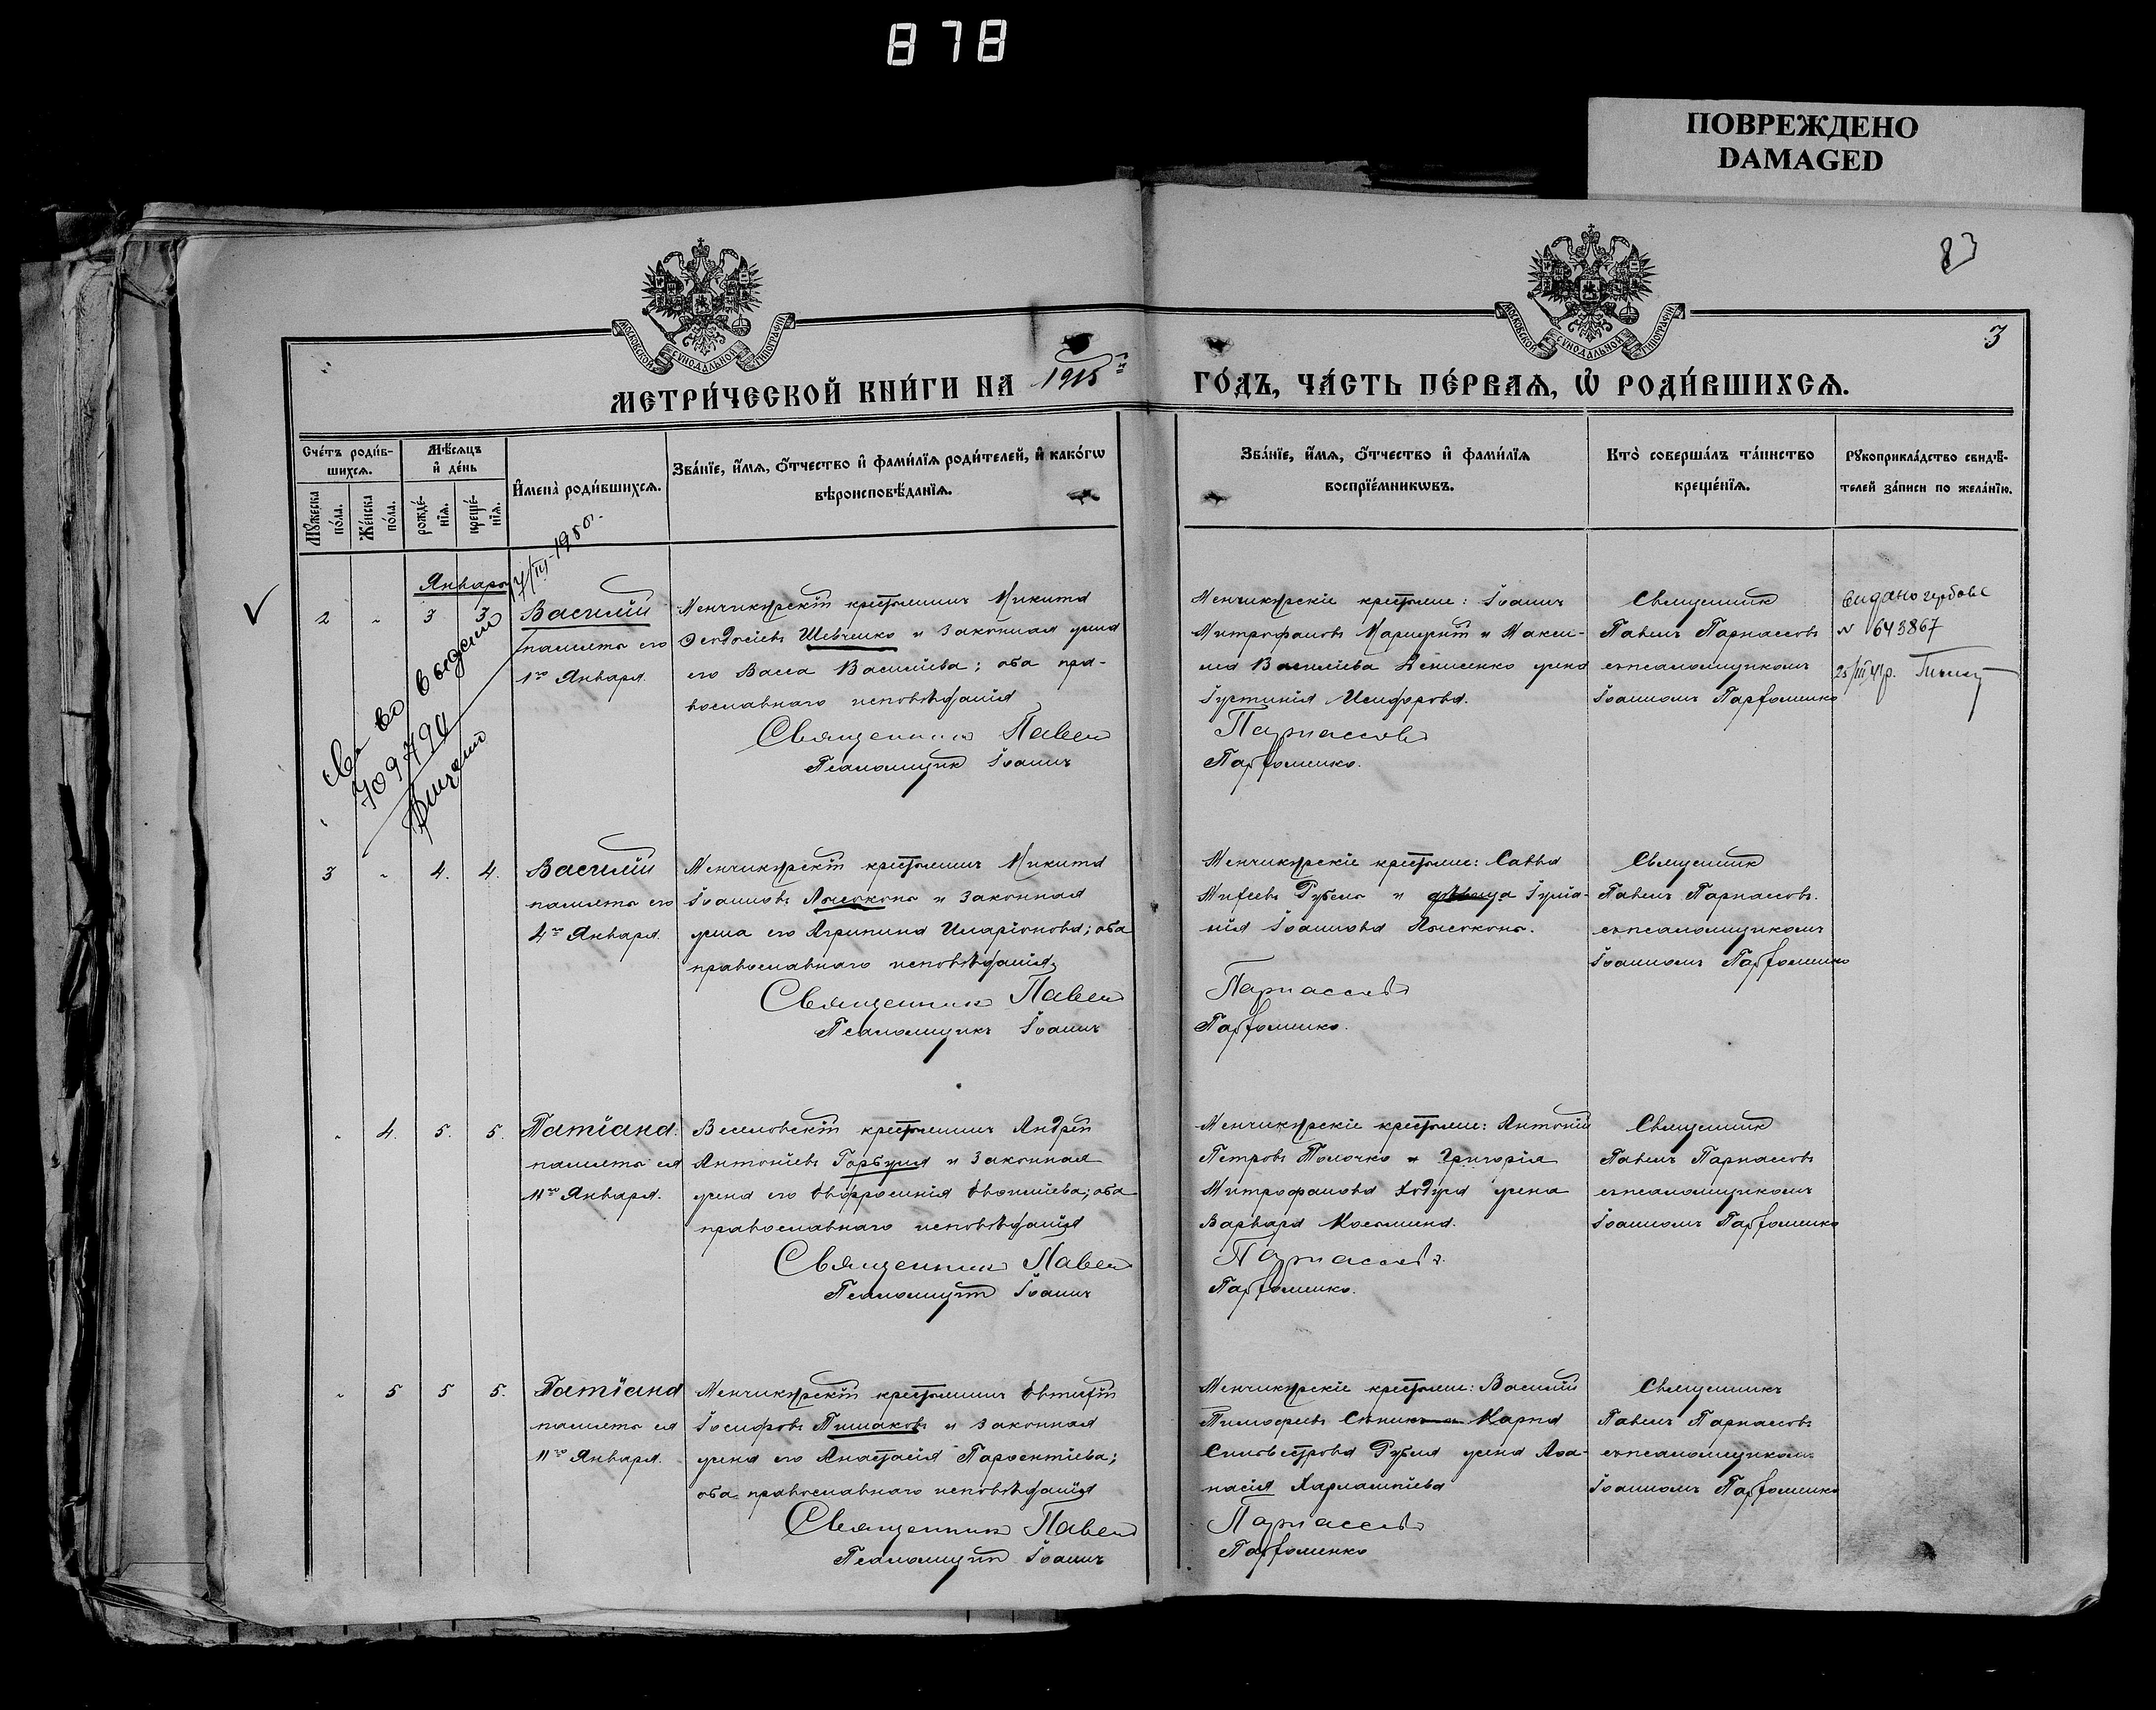 878
ПОВРЕЖДЕНО
DAMAGED
83
3
МОСКОВСКОЙ СУНОДАЛЬНОЙ ТИПОГРАФІИ
МОСКОВСКОЙ СУНОДАЛЬНОЙ ТИПОГРАФІИ
МЕТРИ́ЧЕСКОЙ КНИ́ГИ НА 1915й ГО́ДЪ, ЧА́СТЬ ПЕ́РВАѦ, Ѡ҆ РОДИ́ВШИХСѦ.
Сче́тъ роди́в-
шихсѧ.
Мꙋжеска
по́ла.
Же́нска
по́ла.
Мѣ́сѧцъ
и҆ де́нь
рожде́-
нїѧ.
креще́-
нїѧ.
И҆мена̀ роди́вшихсѧ.
Зва́нїе, и҆́мѧ, ѻ҆́тчество и҆ фами́лїѧ роди́телей, и҆ како́гѡ
вѣроисповѣ́данїѧ.
Зва́нїе, и҆́мѧ, ѻ҆́тчество и҆ фами́лїѧ
воспрїе́мникѡвъ.
Кто̀ соверша́лъ та́инство
креще́нїѧ.
Рꙋкоприкла́дство свидѣ́-
телей за́писи по жела́нїю.
Января
17/III-1955.
2 " 3 3
Василій
память его
1го Января.
Менчикурскій крестьянинъ Никита
Ѳеодосіевъ Шевченко и законная жена
его Васса Василіева; оба пра-
вославнаго исповѣданія
Священникъ Павелъ
Псаломщик Іоаннъ
Менчикурскіе крестьяне: Іоаннъ
Митрофановъ и Макси-
ма Василіева Денисенко жена
Іустинія Исидорова.
Парнассовъ
Парфоменко.
Священник
Павелъ Парнассовъ
съ псаломщикомъ
Іоанномъ Парфоменко
Видано гербове
№ 643867
25/III 41р.
3 " 4. 4.
Василій
память его
4го Января.
Менчикурскій крестьянинъ Никита
Іоанновъ Лысоконь и законная
жена его Агрипина Иларіонова; оба
православнаго исповѣданія
Священникъ Павелъ
Псаломщикъ Іоаннъ
Менчикурскіе крестьяне: Савва
Михеевъ Рубель и дѣвица Іулiа-
нія Іоаннова Лысоконь.
Парнассовъ
Парфоменко.
Священник
Павелъ Парнассовъ.
съ псаломщикомъ
Іоанномъ Парфоменко
" 4. 5. 5.
Татіана.
память ея
11го Января.
Веселовскій крестьянинъ Андрей
Антоніевъ Горбуля и законная
жена его Евфросинія; оба
православнаго исповѣданія
Священникъ Павелъ
Псаломщик Іоаннъ
Менчикурскіе крестьяне: Антоній
Петровъ Толочко и Григорія
Митрофанова Ходуса жена
Варвара Космина.
Парнассовъ.
Парфоменко.
Священник
Павелъ Парнассовъ
съ псаломщикомъ
Іоанномъ Парфоменко
" 5 5 5.
Татіана
память ея
11го Января.
Менчикурскій крестьянинъ Евтихій
Іосифовъ Пишаковъ и законная
жена его Анастасія;
оба православнаго исповѣданія
Священникъ Павелъ
Псаломщик Іоаннъ
Менчикурскіе крестьяне: Василій
Тимофеевъ и Карпа
Сильвестрова Рубля жена Аѳа-
насія Харлампіева
Парнассовъ
Парфоменко
Священникъ
Павелъ Парнассовъ
съ псаломщикомъ
Іоанномъ Парфоменко